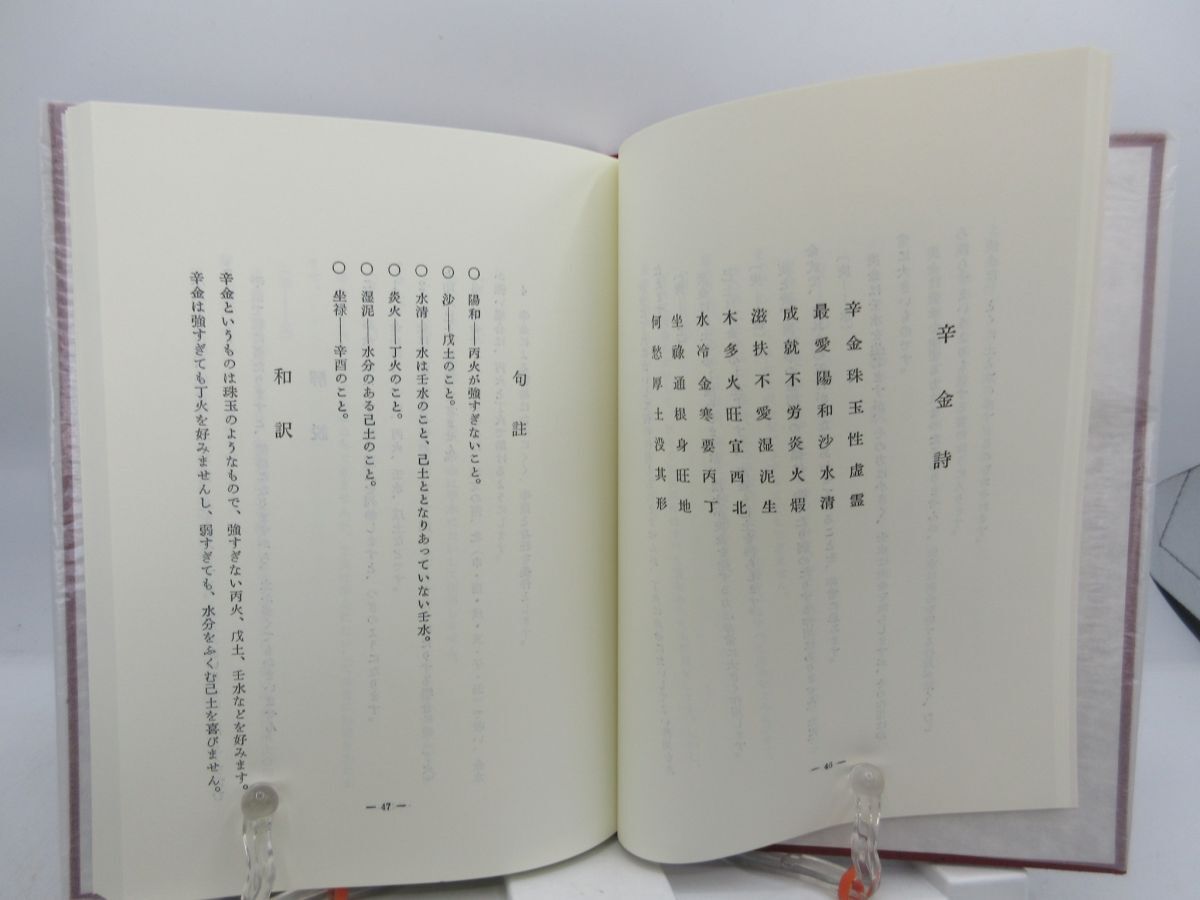 辛金詩
辛金珠玉性虚霊
最愛陽和沙水清
成就不労炎火煆
滋扶不愛湿泥生
木多火旺宜西北
水冷金寒要丙丁
坐祿通根身旺地
何愁厚土没其形
― 46 ―
句註
○ 陽和――丙火が強すぎないこと。
○ 沙――戊土のこと。
○ 水清――水は壬水のこと、己土ととなりあっていない壬水。
○ 炎火――丁火のこと。
○ 湿泥――水分のある己土のこと。
○ 坐禄――辛酉のこと。
和訳
辛金というものは珠玉のようなもので、強すぎない丙火、戊土、壬水などを好みます。
辛金は強すぎても丁火を好みませんし、弱すぎても、水分をふくむ己土を喜びません。
― 47 ―